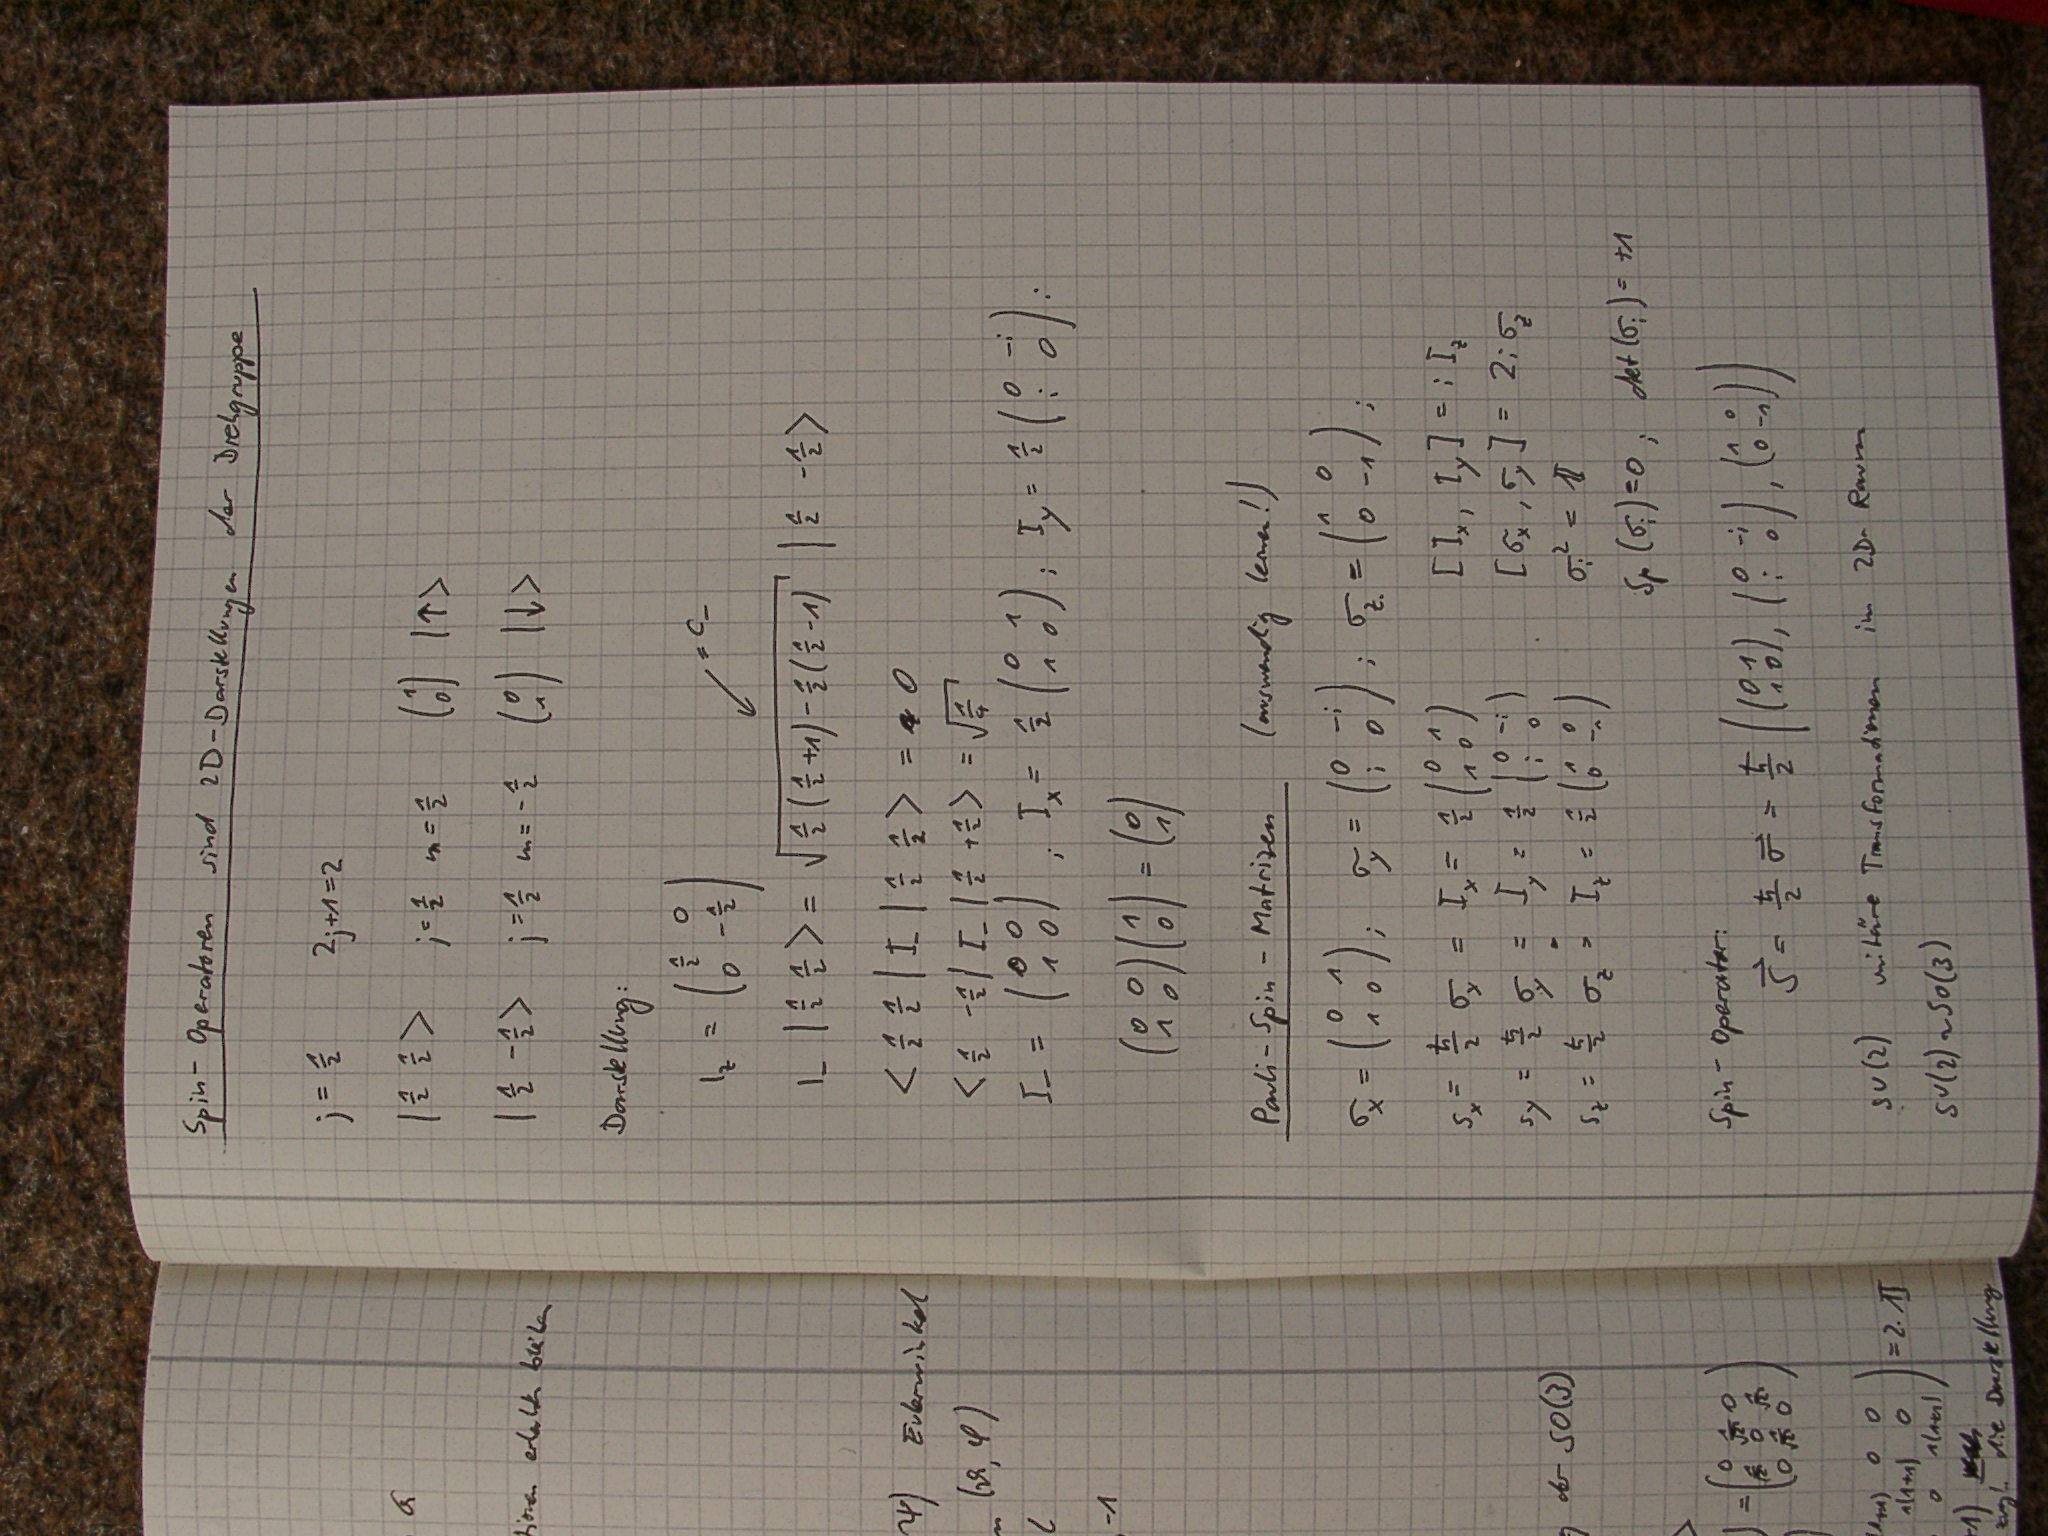 Spin-Operatoren sind 2D-Darstellungen der Drehgruppe
j = 1/2   2j+1=2
|1/2 1/2>   j=1/2 m=1/2   (1 0) |↑>
|1/2 -1/2>   j=1/2 m=-1/2   (0 1) |↓>
Darstellung:
I_z = (1/2 0; 0 -1/2)   = C_-
I_- |1/2 1/2> = √(1/2(1/2+1) - 1/2(1/2-1)) |1/2 -1/2>
<1/2 1/2| I_- |1/2 1/2> = 0
<1/2 -1/2| I_- |1/2 +1/2> = √(1/4)
I_- = (0 0; 1 0) ; I_x = 1/2 (0 1; 1 0) ; I_y = 1/2 (0 -i; i 0) ;
(0 0; 1 0)(1; 0) = (0; 1)
Pauli-Spin-Matrizen (auswendig lernen!)
σ_x = (0 1; 1 0) ; σ_y = (0 -i; i 0) ; σ_z = (1 0; 0 -1) ;
S_x = ħ/2 σ_x = I_x = 1/2 (0 1; 1 0)   [I_x, I_y] = i I_z
S_y = ħ/2 σ_y = I_y = 1/2 (0 -i; i 0)   [σ_x, σ_y] = 2i σ_z
S_z = ħ/2 σ_z = I_z = 1/2 (1 0; 0 -1)   σ_i² = 𝟙
Sp(σ_i)=0 ; det(σ_i) = +1
Spin-Operator:
S⃗ = ħ/2 σ⃗ = ħ/2 ((0 1; 1 0), (0 -i; i 0), (1 0; 0 -1))
SU(2) unitäre Transformationen im 2D-Raum
SU(2) ~ SO(3)
erhalten
Ψ) Eulerwinkel
(ϑ, φ)
-1
der SO(3)
= 2·𝟙
die Darstellung